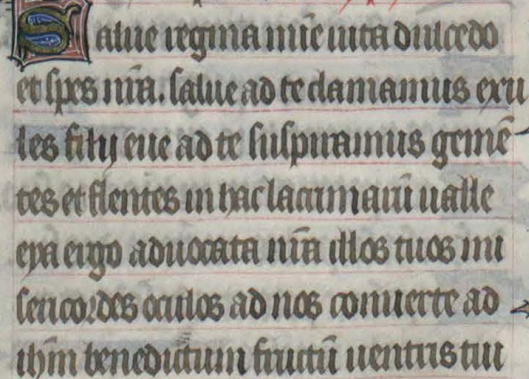 Salue regina mie uita dulcedo
et spes nra. salue ad te clamamus exu
les filij eue ad te suspiramus gemē
tes et flentes in hac lacrimarū ualle
eya ergo aduocata nra illos tuos mi
sericordes oculos ad nos conuerte ad
ihm benedictum fructū uentris tui